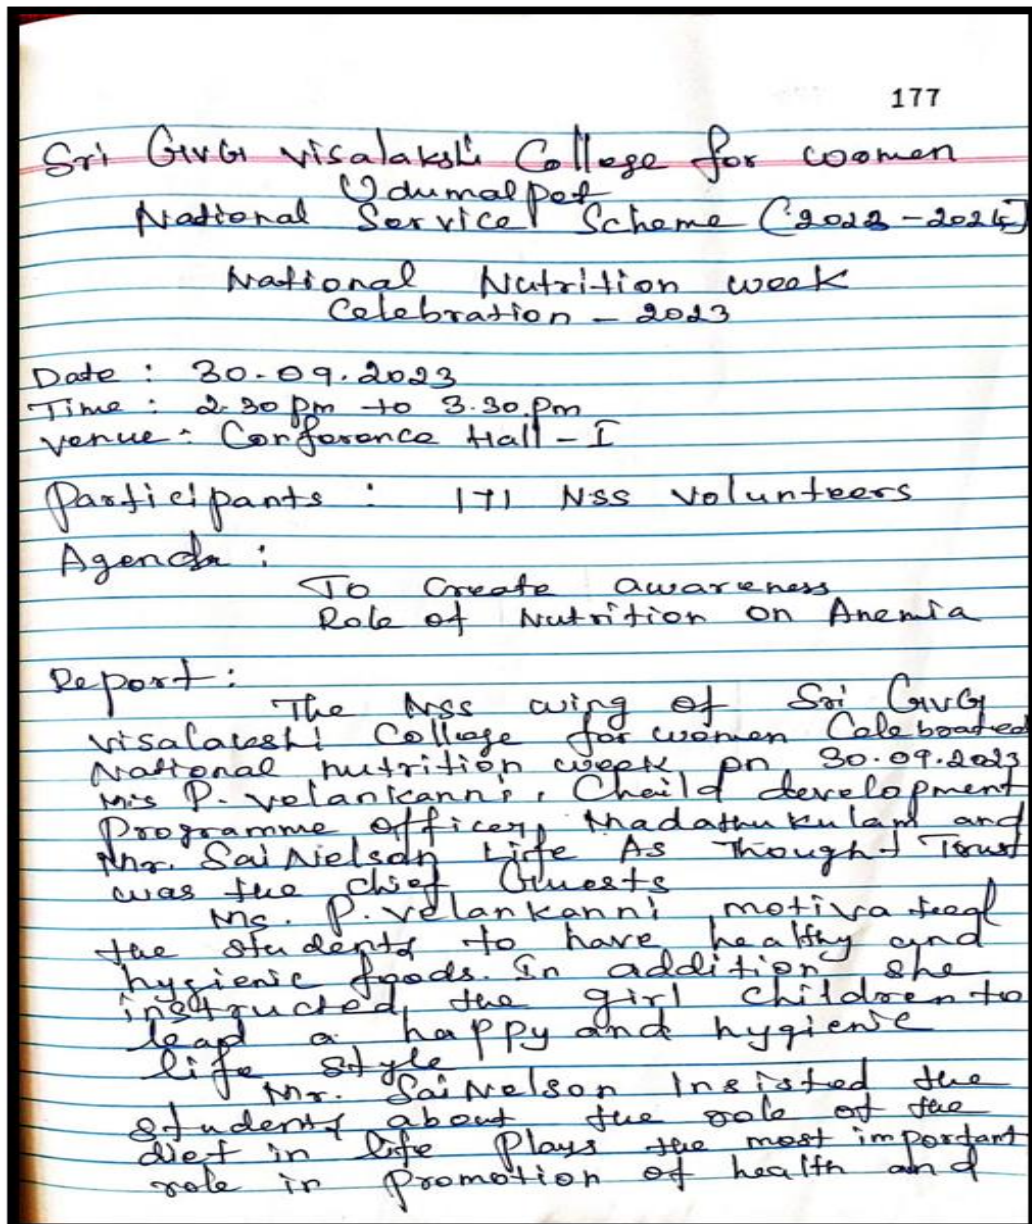 177
Sri GVG visalakshi College for women
Udumalpet
National Service Scheme (2023-2024]
National Nutrition week
Celebration - 2023
Date : 30.09.2023
Time : 2.30 pm to 3.30.pm
venue : Conference Hall - I
Participants : 171 NSS volunteers
Agenda :
To Create awareness
Role of Nutrition on Anemia
Report :
The NSS wing of Sri GVG
visalakshi College for women Celebrated
National nutrition week on 30.09.2023
Mis P. velankanni, Cheild development
Programme Officer, Madathukulam and
Mr. Sai Nielson Life As Though-t Trust
was the chief Guests
Ms. P. velankanni motivated
the students to have healthy and
hygienic foods. In addition she
instructed, the girl children to
lead a happy and hygienic
life style
Mr. Sai Nelson Insisted the
students about the role of the
diet in life Plays the most important
role in Promotion of health and